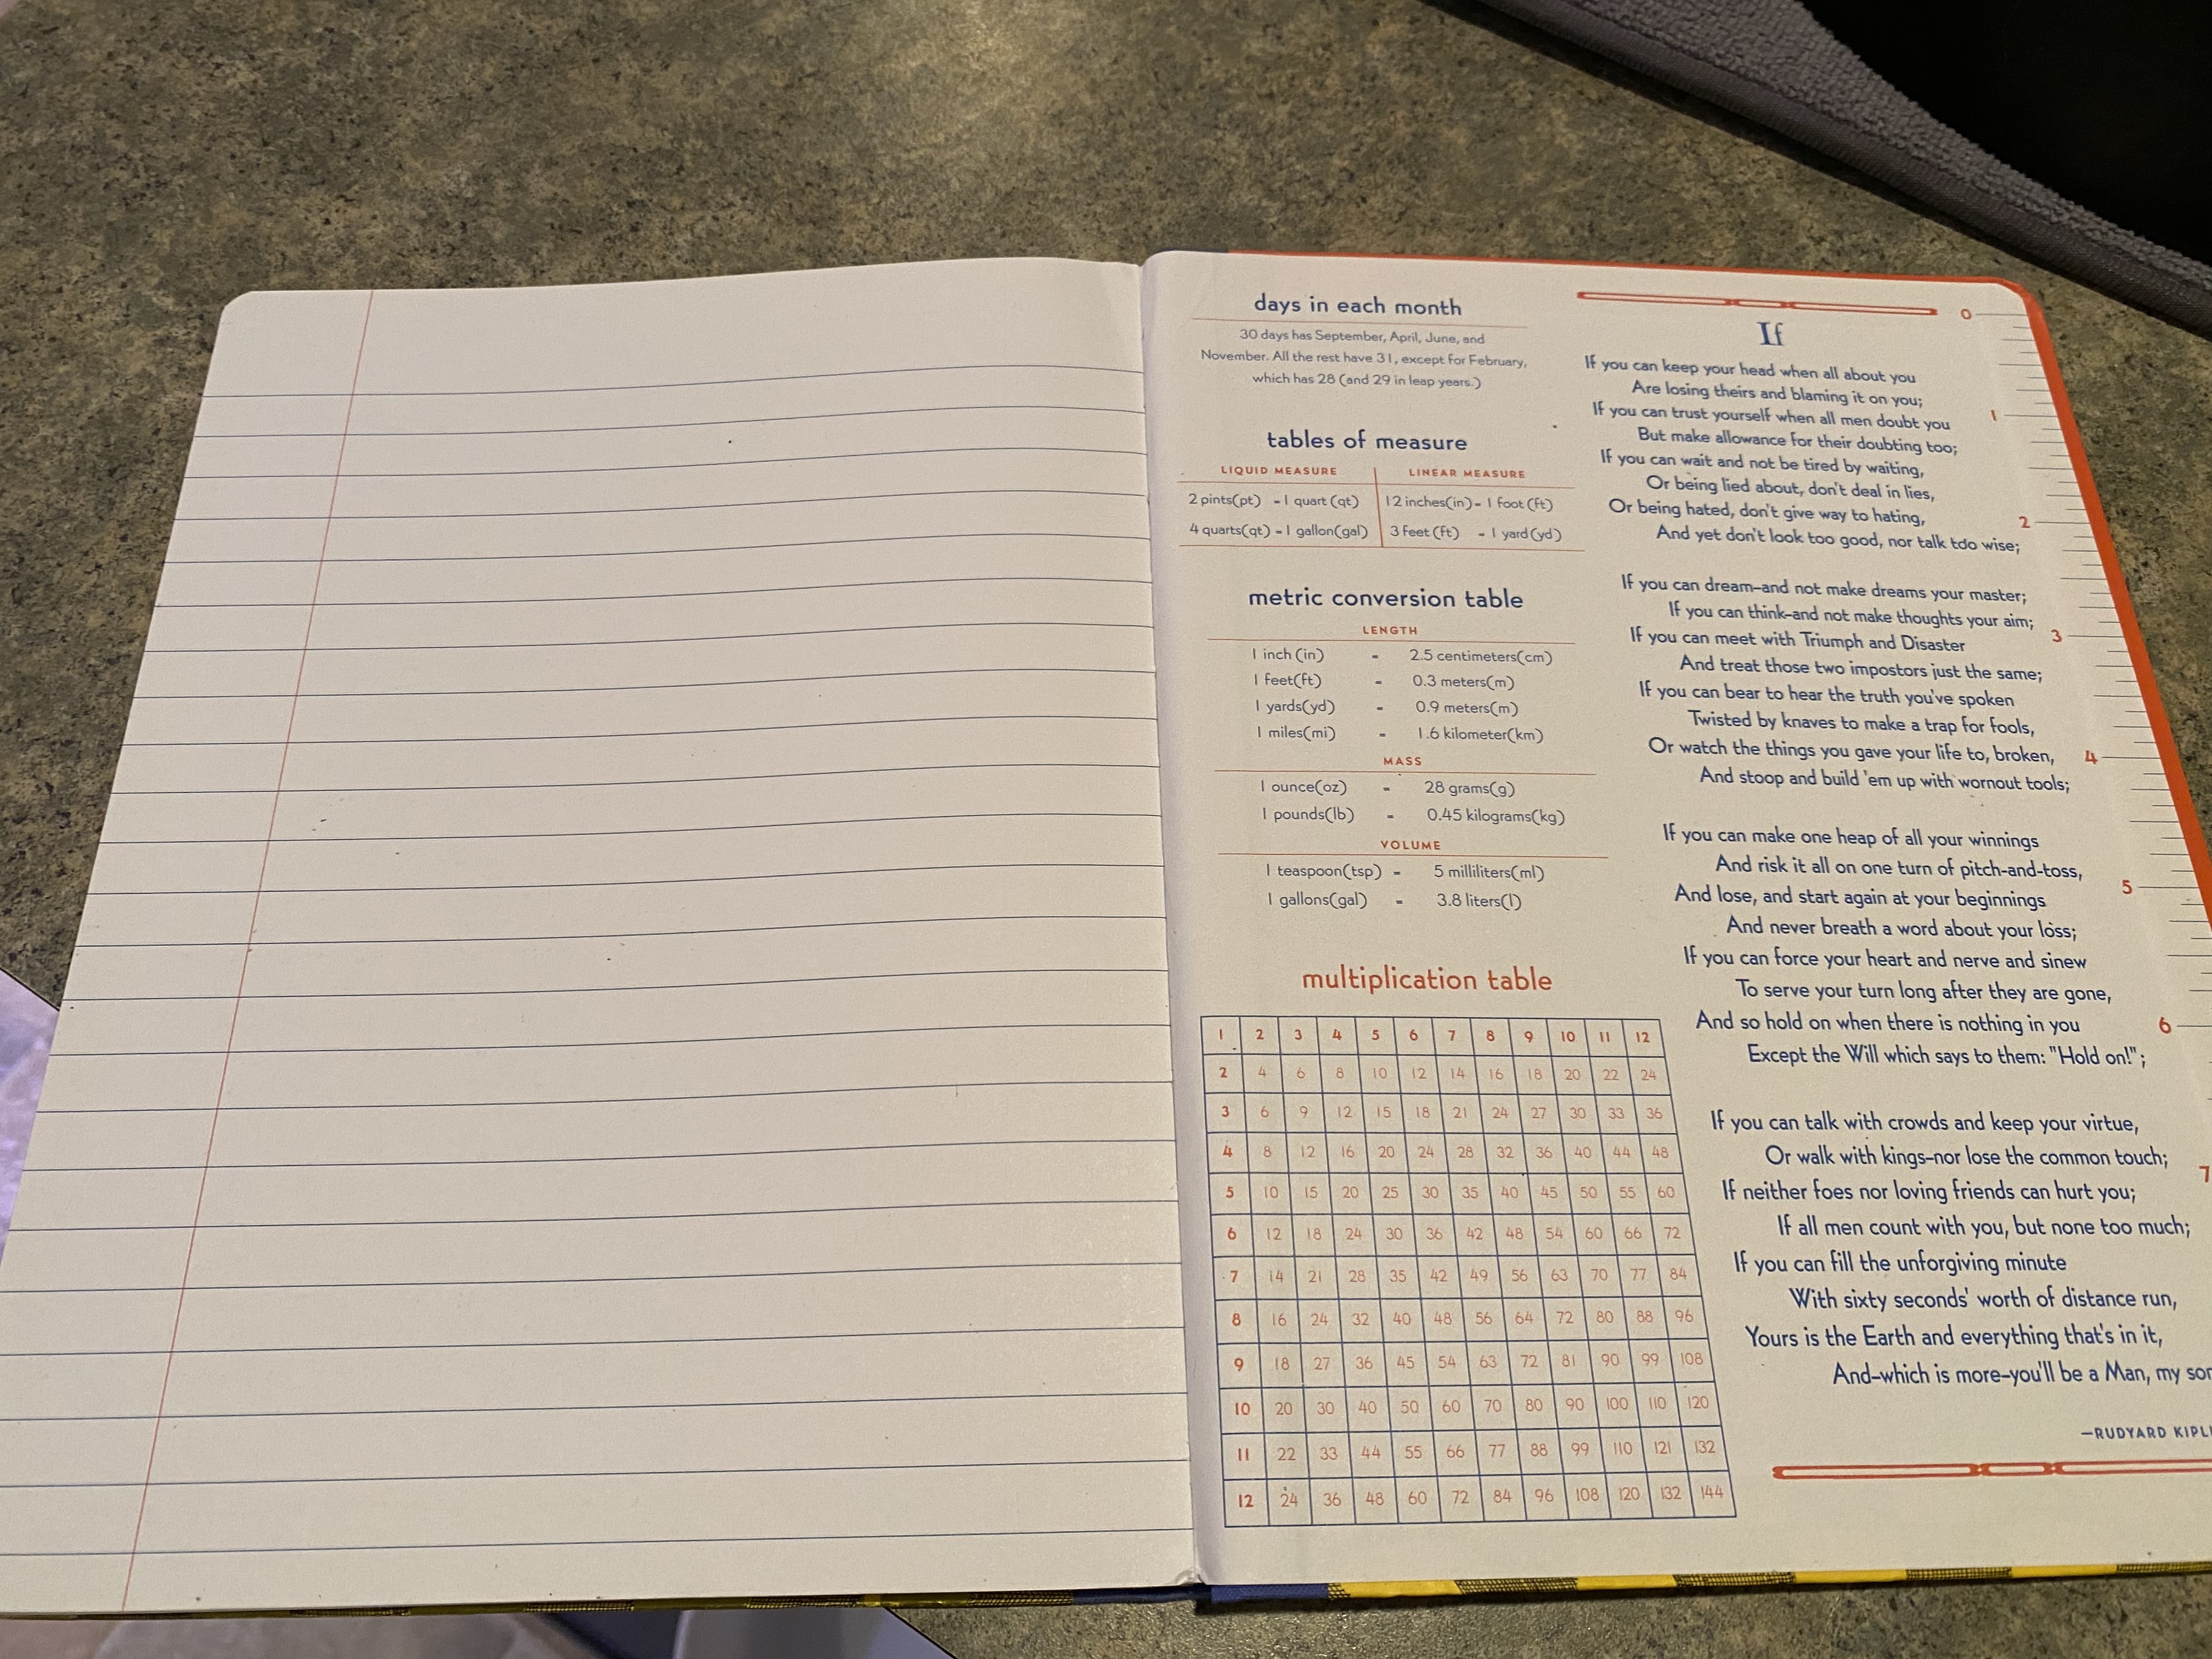 days in each month
30 days has September, April, June, and
November. All the rest have 31, except for February,
which has 28 (and 29 in leap years.)
tables of measure
LIQUID MEASURE LINEAR MEASURE
2 pints(pt) = 1 quart (qt) 12 inches(in) = 1 foot (ft)
4 quarts(qt) = 1 gallon(gal) 3 feet (ft) = 1 yard (yd)
metric conversion table
LENGTH
1 inch (in) = 2.5 centimeters(cm)
1 feet(ft) = 0.3 meters(m)
1 yards(yd) = 0.9 meters(m)
1 miles(mi) = 1.6 kilometer(km)
MASS
1 ounce(oz) = 28 grams(g)
1 pounds(lb) = 0.45 kilograms(kg)
VOLUME
1 teaspoon(tsp) = 5 milliliters(ml)
1 gallons(gal) = 3.8 liters(l)
multiplication table
1 2 3 4 5 6 7 8 9 10 11 12
2 4 6 8 10 12 14 16 18 20 22 24
3 6 9 12 15 18 21 24 27 30 33 36
4 8 12 16 20 24 28 32 36 40 44 48
5 10 15 20 25 30 35 40 45 50 55 60
6 12 18 24 30 36 42 48 54 60 66 72
7 14 21 28 35 42 49 56 63 70 77 84
8 16 24 32 40 48 56 64 72 80 88 96
9 18 27 36 45 54 63 72 81 90 99 108
10 20 30 40 50 60 70 80 90 100 110 120
11 22 33 44 55 66 77 88 99 110 121 132
12 24 36 48 60 72 84 96 108 120 132 144
If
If you can keep your head when all about you
Are losing theirs and blaming it on you;
If you can trust yourself when all men doubt you
But make allowance for their doubting too;
If you can wait and not be tired by waiting,
Or being lied about, don't deal in lies,
Or being hated, don't give way to hating,
And yet don't look too good, nor talk too wise;
If you can dream–and not make dreams your master;
If you can think–and not make thoughts your aim;
If you can meet with Triumph and Disaster
And treat those two impostors just the same;
If you can bear to hear the truth you've spoken
Twisted by knaves to make a trap for fools,
Or watch the things you gave your life to, broken,
And stoop and build 'em up with wornout tools;
If you can make one heap of all your winnings
And risk it all on one turn of pitch-and-toss,
And lose, and start again at your beginnings
And never breath a word about your loss;
If you can force your heart and nerve and sinew
To serve your turn long after they are gone,
And so hold on when there is nothing in you
Except the Will which says to them: "Hold on!";
If you can talk with crowds and keep your virtue,
Or walk with kings–nor lose the common touch;
If neither foes nor loving friends can hurt you;
If all men count with you, but none too much;
If you can fill the unforgiving minute
With sixty seconds' worth of distance run,
Yours is the Earth and everything that's in it,
And–which is more–you'll be a Man, my
—RUDYARD
0
1
2
3
4
5
6
7